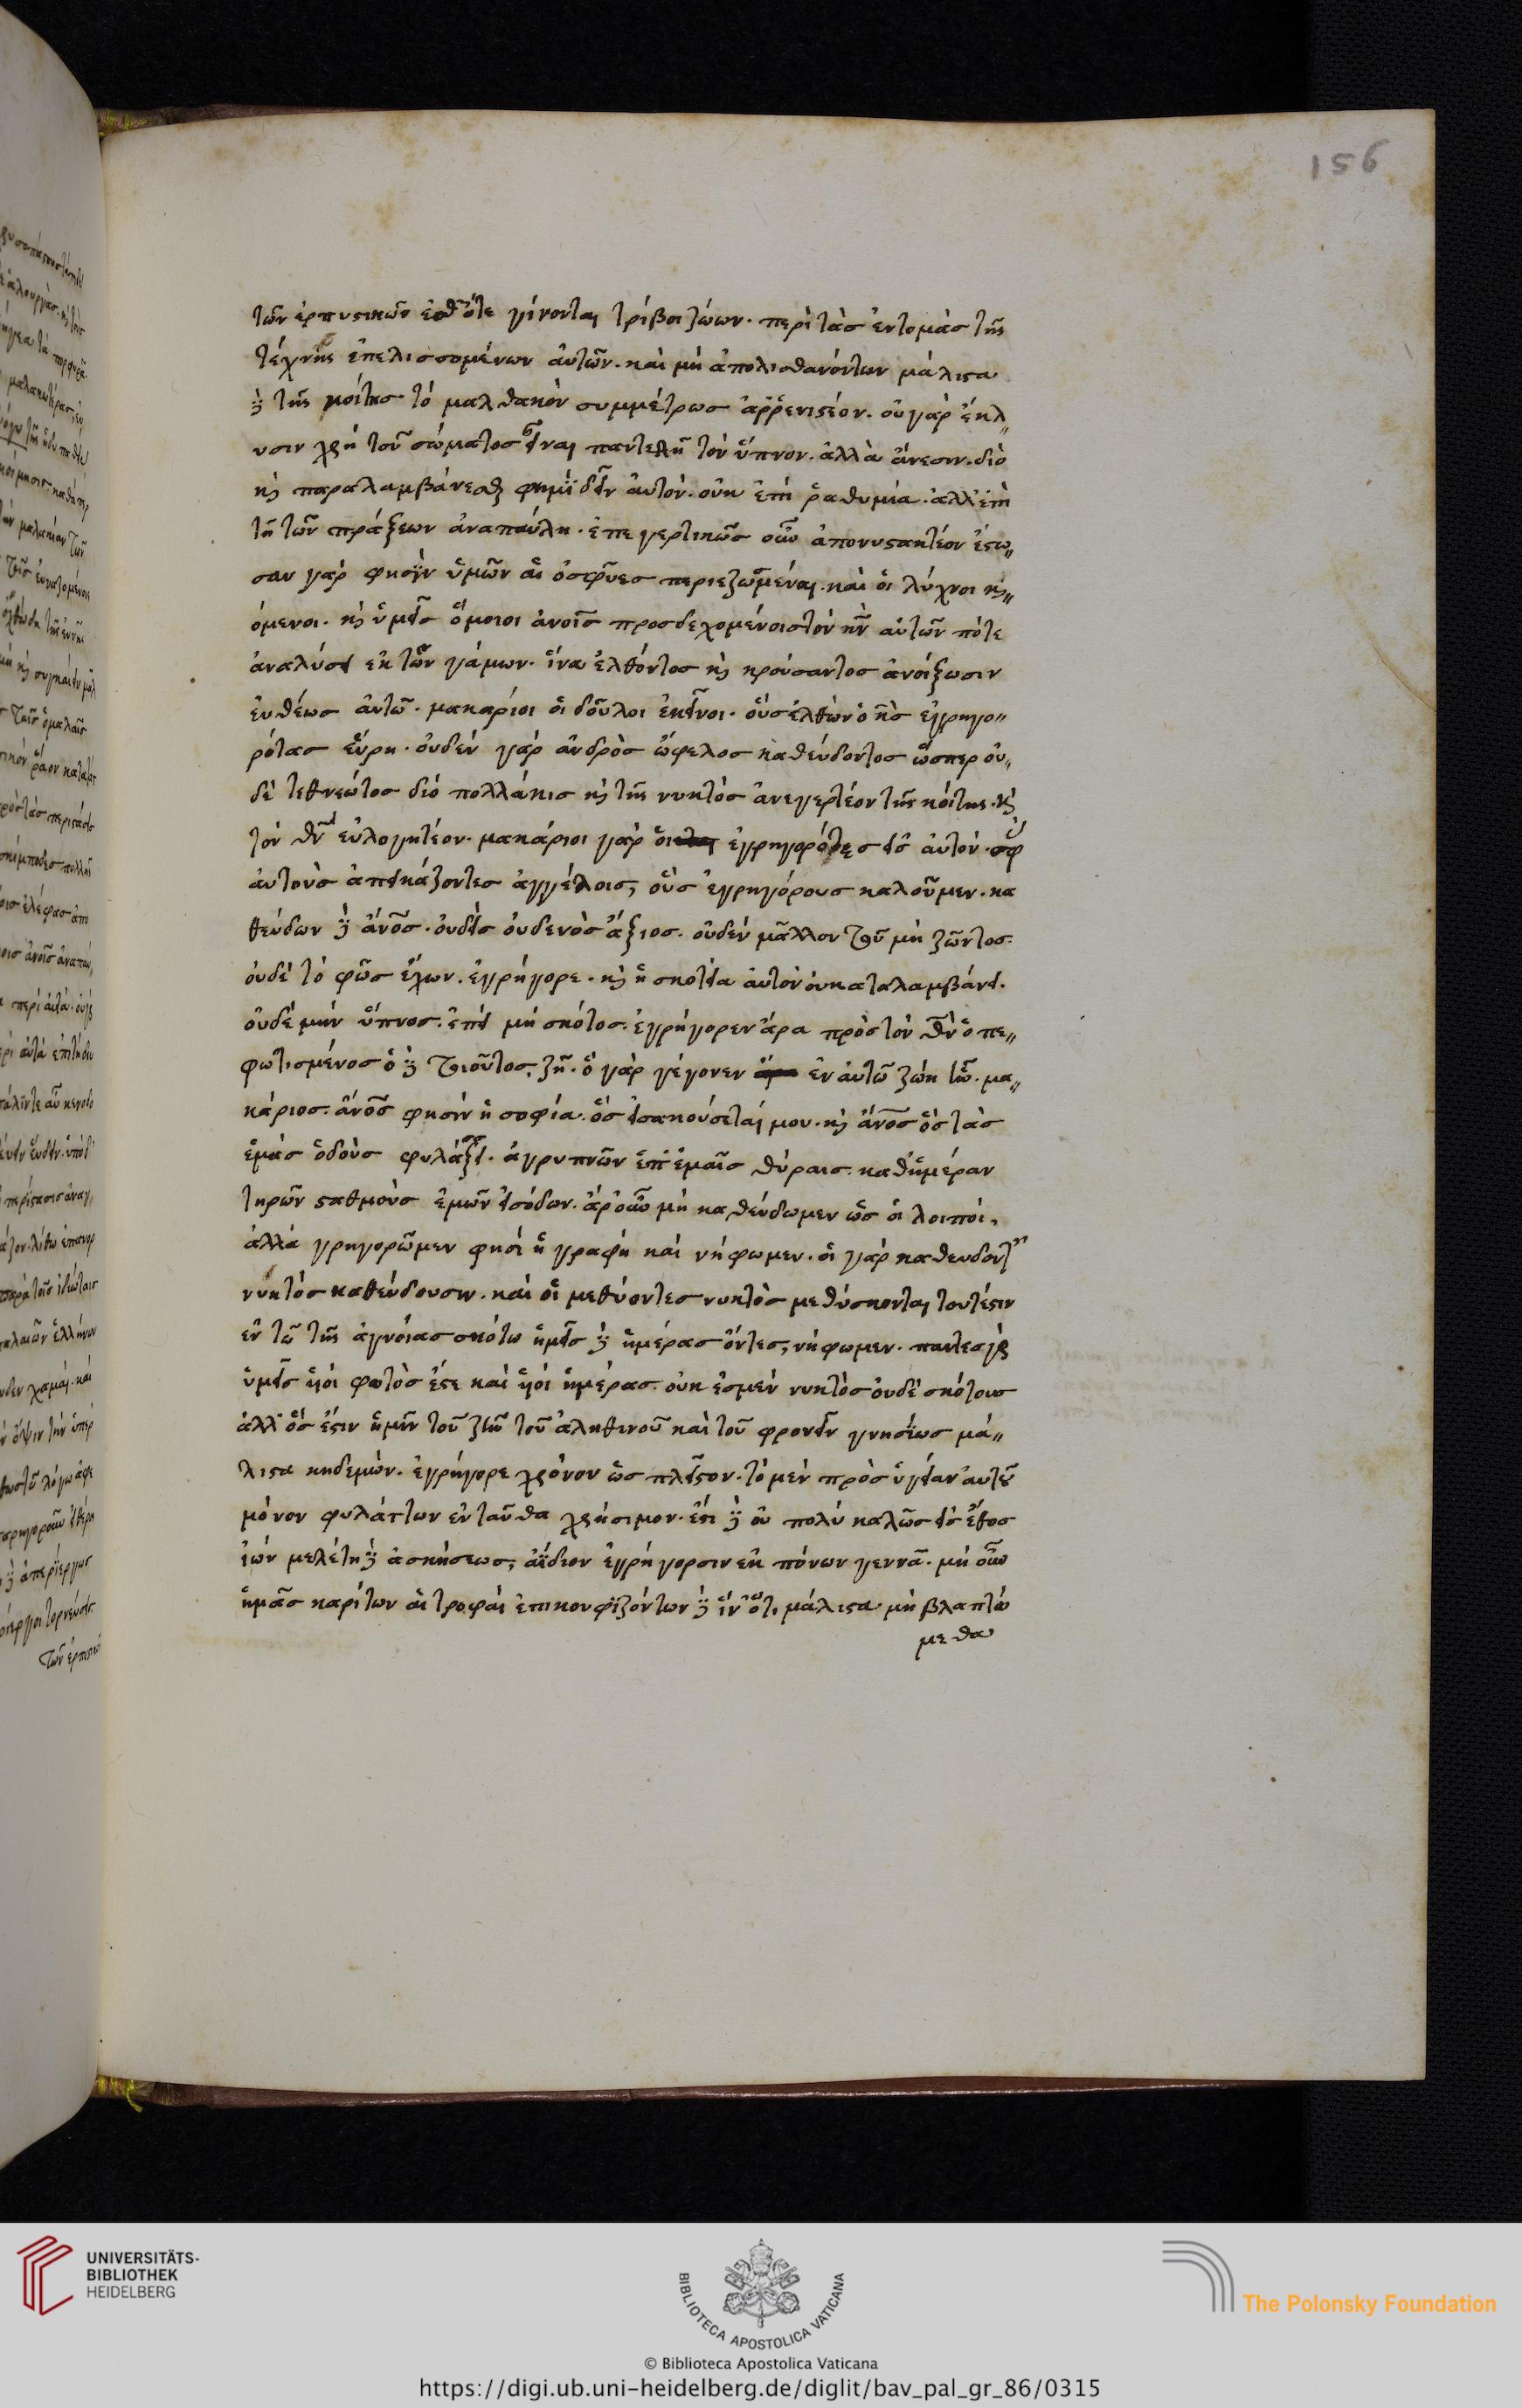 156
τῶν ἑρπυστικῶν ἐσθ' ὅτε γίνονται τρίβοι ζώων. περὶ τὰσ ἐντομὰσ τῆς
τέχνης ἐπελισσομένων ἀυτῶν. καὶ μὴ ἀπολισθανόντων μάλιστα
δὲ τῆς κοίτησ τὸ μαλθακὸν συμμέτρωσ ἀρῥενιστέον. οὐ γὰρ ἔκλ„
υσιν χρὴ τοῦ σώματοσ εἶναι παντελῆ τὸν ὕπνον. ἀλλὰ ἄνεσιν. διὸ
κὶ παραλαμβάνεσθαι φημὶ δεῖν ἀυτὸν. οὐκ ἐπὶ ῥαθυμία. ἀλλ' ἐπὶ
τῆ τῶν πράξεων ἀναπάυλη. ἐπεγερτικῶσ οὖν ἀπονυστακτέον ἔστω„
σαν γὰρ φησὶν ὑμῶν ἁι ὀσφῦεσ περιεζωσμέναι. καὶ ὁι λύχνοι και„
όμενοι. κὶ ὑμεῖσ ὅμοιοι ἀνοῖσ προσδεχομένοισ τὸν κν̄ ἀυτῶν πότε
ἀναλύσει ἐκ τῶν γάμων. ἵνα ἐλθόντοσ κὶ κρούσαντοσ ἀνοίξωσιν
ἐυθέωσ ἀυτῶ. μακάριοι ὁι δοῦλοι ἐκεῖνοι. οὓσ ἐλθὼν ὁ κσ̄ ἐγρηγο„
ρότασ εὕρη. ὀυδὲν γὰρ ἀνδρὸσ ὤφελοσ καθέυδοντοσ ὥσπερ ὀυ„
δὲ τεθνεώτοσ διὸ πολλάκισ κὶ τῆσ νυκτὸσ ἀνεγερτέον τῆς κόιτησ. κὶ
τὸν θν̄ εὐλογητέον. μακάριοι γὰρ ὁι ἐγρηγορότεσ εἰσ ἀυτὸν. σφᾶσ
ἀυτοὺσ ἀπεικάζοντεσ ἀγγέλοισ, οὓσ ἐγρηγόρουσ καλοῦμεν. κα
θέυδων δὲ ἄνοσ. ὀυδεὶσ ὀυδενὸσ ἄξιοσ. οὐδὲν μᾶλλον τοῦ μὴ ζῶντοσ.
ὀυδὲ τὸ φῶσ ἔχων. ἐγρήγορε. κὶ ἡ σκοτεία ἀυτὸν ὀυ καταλαμβάνει.
οὐδὲ μὴν ὕπνοσ. ἐπεὶ μὴ σκότοσ. ἐγρήγορεν ἄρα πρὸσ τὸν θν̄ ὁ πε„
φωτισμένοσ ὁ δὲ τοιοῦτοσ, ζῆ. ὃ γὰρ γέγονεν ἐν ἀυτῶ ζωὴ ἦν. μα„
κάριοσ. ἄνοσ φησὶν ἡ σοφία. ὃσ εἰσακούσεταί μου. κὶ ἄνοσ ὃσ τὰσ
ἐμὰσ ὁδοὺσ φυλάξει. ἀγρυπνῶν ἐπ' ἐμαῖσ θύραισ. καθ' ἡμέραν
τηρῶν σταθμοὺσ ἐμῶν εἰσόδων. ἆρ' οὖν μὴ καθέυδωμεν ὡσ ὁι λοιποί.
ἀλλὰ γρηγορῶμεν φησὶ ἡ γραφὴ καὶ νήφωμεν. ὁι γὰρ καθευδοντ
νυκτὸσ καθέυδουσιν. καὶ ὁι μεθύοντεσ νυκτὸσ μεθύσκονται τουτέστιν
ἐν τῶ τῆσ ἀγνόιασ σκότω ἡμεῖσ δὲ ἡμέρασ ὄντεσ, νήφωμεν. παντεσ γὰρ
ὑμεῖσ ὑιοὶ φωτὸσ ἐστε καὶ ὑιοὶ ἡμέρασ. οὐκ ἐσμὲν νυκτὸσ ὀυδὲ σκότουσ
ἀλλ' ὅσ ἐστιν ἡμῖν τοῦ ζῆν τοῦ ἀληθινοῦ καὶ τοῦ φρονεῖν γνησίωσ μά„
λιστα κηδεμών. ἐγρήγορε χρόνον ὡσ πλεῖστον. τὸ μὲν πρὸσ ὑγείαν ἀυτοῦ
μόνον φυλάττων ἐνταῦθα χρήσιμον. ἔστι δὲ οὐ πολὺ καλῶσ εἰσ ἔθοσ
ἰὸν μελέτη δὲ ἀσκήσεωσ, ἀΐδιον ἐγρήγορσιν ἐκ πόνων γεννᾶ. μὴ οὖν
ἡμᾶσ βαρίτων ἁι τροφαὶ ἐπικουφιζόντων δὲ ἵν' ὅτι μάλιστα μὴ βλαπτώ
μεθα
UNIVERSITÄTS-
BIBLIOTHEK
HEIDELBERG
BIBLIOTECA APOSTOLICA VATICANA
The Polonsky Foundation
© Biblioteca Apostolica Vaticana
https://digi.ub.uni-heidelberg.de/diglit/bav_pal_gr_86/0315